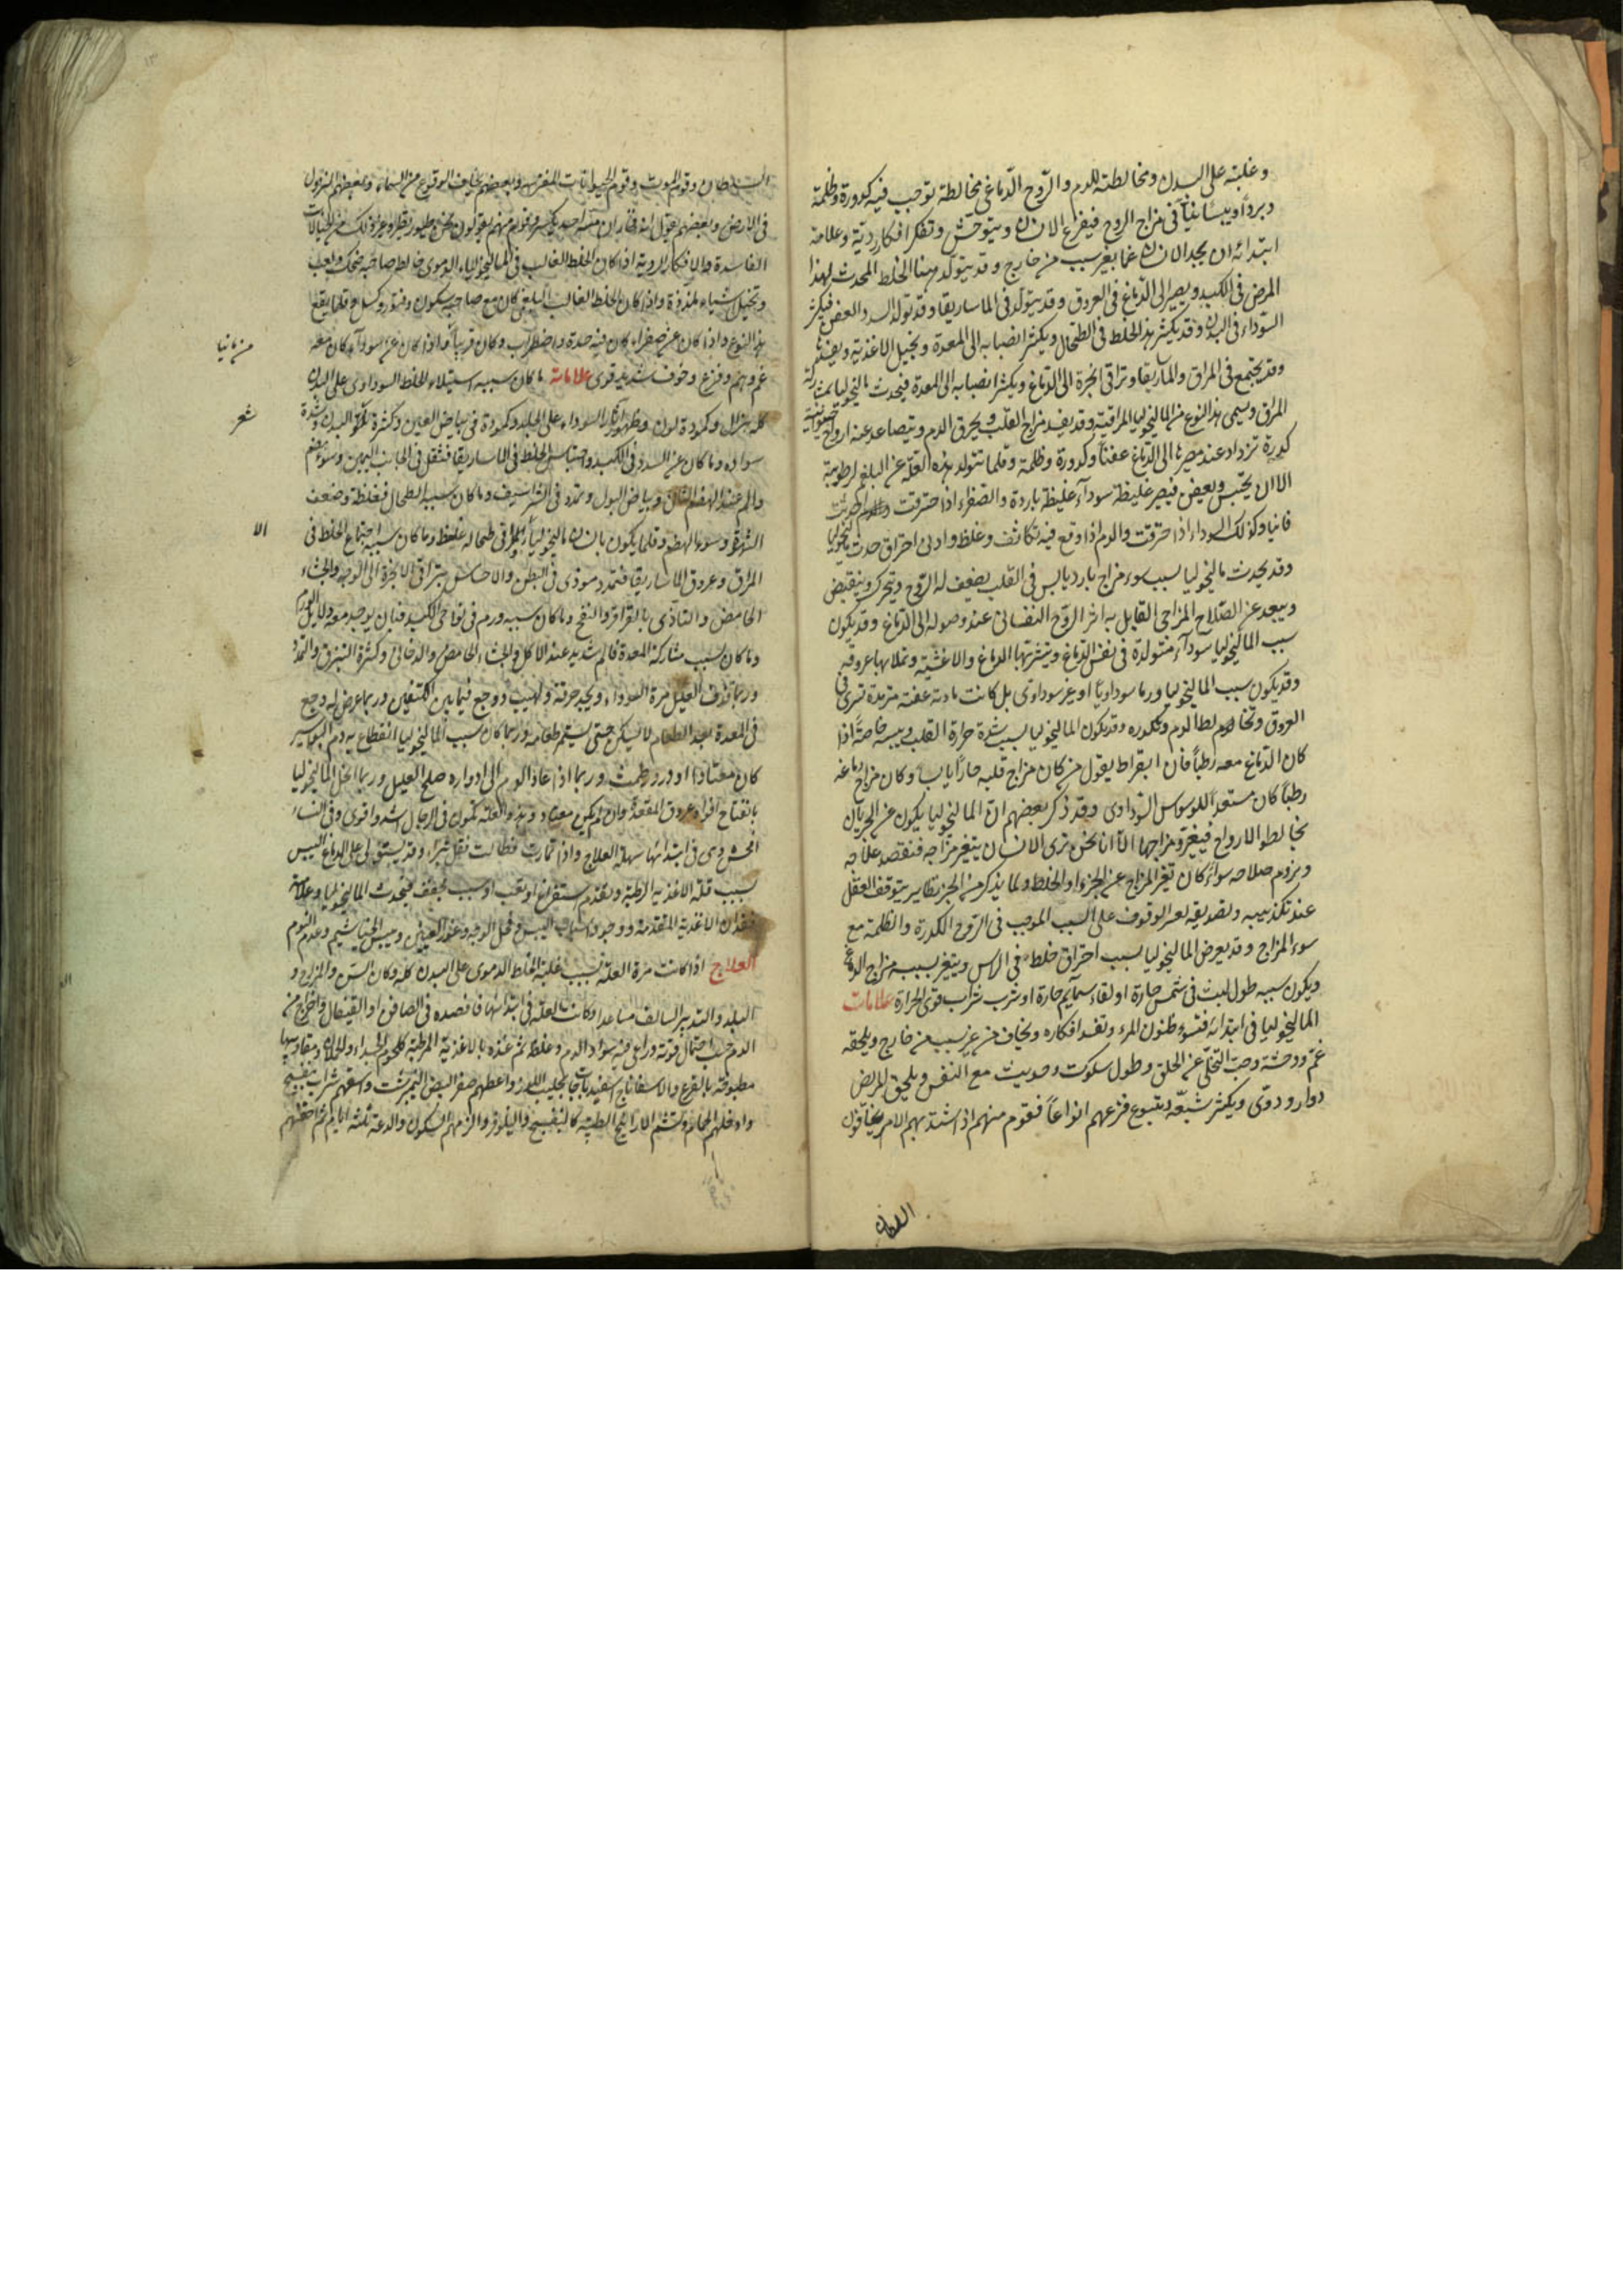 وغلبته على البدن ومخالطته للدم والروح الدماغى مخالطة توجب فيه كدورة وظلمة
وبردا ويبسا فى مزاج الروح فيفزع الانسان ويتوحش وتفكر افكار ردية وعلامة
ابتدائه ان يجد الانسان غما بغير سبب من خارج وقد يتولد هذا الخلط المحدث لهذا
المرض فى الكبد ويصير الى الدماغ فى العروق وقد يتولد فى الماساريقا وقد تولد السدد العفن فيكثر
السوداء فى البدن وقد يكثر هذا الخلط فى الطحال ويكثر انصبابه الى المعدة ويحيل الاغذية ويفسدها
وقد يجتمع فى المراق والماساريقا وتراقى ابخرة الى الدماغ ويكثر انصبابه الى المعدة فيحدث ماليخوليا بمشاركة
المراق ويسمى هذا النوع من الماليخوليا المراقية وقد يفسد مزاج القلب ويحرق الدم ويتصاعد عنه ارواح
كدرة تزداد عند مصيرها الى الدماغ عفنا وكدورة وظلمة وقلما تتولد هذه العلة عن البلغم لرطوبته
الا ان يحتبس ويعفن فيصير غليظة سوداء غليظة باردة والصفراء اذا احترقت
مانيا وكذلك السوداء اذا احترقت والدم اذا وقع فيه تكاثف وغلظ وادنى احتراق حدث ماليخوليا
وقد يحدث ماليخوليا بسبب سوء مزاج بارد يابس فى القلب يضعف له الروح ويتحرك وينقبض
ويبعد عن الصلاح المزاجى القابل به اثر الروح النفسانى عند وصوله الى الدماغ وقد يكون
سبب الماليخوليا سوداء متولدة فى نفس الدماغ وتتشربها الدماغ والاغشية وتملا بها عروقه
وقد يكون سبب الماليخوليا ورما سوداويا او غير سوداوى بل كانت مادته عفنة متربدة تسرى فى
العروق وتخالط الدم وتكدره وقد يكون الماليخوليا بسبب شدة حرارة القلب ويبسه خاصة اذا
كان الدماغ معه رطبا فان ابقراط يقول من كان مزاج قلبه حارا يابسا وكان مزاج دماغه
رطبا كان مستعدا للوسواس السوداوى وقد ذكر بعضهم ان الماليخوليا يكون عن الجن بان
يخالطوا الارواح فيغيروا مزاجها الا انا نحن نرى الانسان يتغير مزاجه فنقصد علاجه
ونروم صلاحه سواء كان تغير المزاج عن الجن او الخلط ولما يذكر من الجن نظاير يتوقف العقل
عند تكذيبه وتصديقه لعسر الوقوف على السبب الموجب فى الروح الكدرة والظلمة مع
سوء المزاج وقد يعرض الماليخوليا بسبب احتراق خلط فى الراس ويتغير بسببه مزاج الدماغ
ويكون سببه طول لبث فى شمس حارة او لقاء سمايم حارة او شرب شراب قوى الحرارة علامات
الماليخوليا فى ابتدائه فتسوء ظنون المرء وتفسد افكاره ويخاف من غير سبب من خارج ويلحقه
غم ووحشة وحب التخلى عن الخلق وطول سكوت وصويت مع النفس ويلحق المريض
دوار ودوى ويكثر شبقه ويتنوع فزعهم انواعا فقوم منهم اذا اشتد بهم الامر يخافون
السلطان
السلطان وقوم الموت وقوم الحيوانات المفترسة وبعضهم يخاف الوقوع من السماء وبعضهم النزول
فى الارض وبعضهم يقول انه فخار ان مسه احد يكسر وقوم منهم يقولون نحن طيور نطير وغير ذلك من الخيالات
الفاسدة والافكار الردية اذا كان الخلط الغالب فى الماليخولياء الدموى خالط صاحبه ضحك ولعب
وتخيل اشياء لذيذة واذا كان الخلط الغالب البلغمى كان مع صاحبه سكون وفتور وكسل قلما يقع
هذا النوع واذا كان عن صفراء كان فيه حدة واضطراب وكان قريبا واذا كان عن سوداء كان معه
من مانيا
غم وهم وفزع وخوف شديد قوى علامات ما كان سببه استيلاء الخلط السوداوى على البدن
كله هزال وكمودة لون وظهور آثار السوداء على الجلد وكمودة فى بياض العين وكثرة البدن وشدة
شعر
سواده وما كان عن السدد فى الكبد واحتباس الخلط فى الماساريقا فثقل فى الجانب اليمين وسوء هضم
والم عند الهضم الثانى وبياض البول وتمدد فى الشراسيف وما كان سببه الطحال فغلظه وضعف
الشهوة وسوء الهضم وقلما يكون بانسان ماليخوليا وطحاله غليظ وما كان سببه اجتماع الخلط فى
الا
المراق وعروق الماساريقا فتمدد موذى فى البطن والاحساس بتراقى الابخرة الى الوجه والجشاء
الحامض والتاذى بالقراقر والنفخ وما كان سببه ورم فى نواحى الكبد فبان يوجد معه دلايل الورم
وما كان بسبب مشاركة المعدة فالم شديد عند الاكل والجشاء الحامض والدخانى وكثرة التبزق والتمدد
وربما قذف العليل مرة السوداء ويجد حرقة ولهيب ووجع فيما بين الكتفين وربما عرض له وجع
فى المعدة بعد الطعام لا يسكن حتى يستمر طعامه وربما كان سبب الماليخوليا انقطاع دم البواسير
كان معتادا او درور طمث وربما اذا عاد الدم الى ادواره صلح العليل وربما انحل الماليخوليا
بانفتاح افواه عروق المقعدة وان لم يكن معتاد وهذه العلة تكون فى الرجال اشد واقوى وفى النساء
افحش وهى فى ابتدائها سهلة العلاج واذا تمادت وطالت فقل تبرئ وقد يستولى على الدماغ اليبس
بسبب قلة الاغذية الرطبة وتقدم استفراغ او تعب او سبب مجفف فيحدث الماليخوليا وعلامته
فقدان الاغذية المتقدمة ووجود اسباب اليبس وقحل الوجه وغور العينين ويبس الخياشيم وعدم النوم
العلاج اذا كانت هذه العلة بسبب غلبة الخلط الدموى على البدن كله وكان السن والمزاج و
البلد والتدبير السالف مساعدا وكانت العلة فى ابتدائها فافصده فى الصافن او القيفال واخراج من
الدم بحسب احتمال قوته وراعى فيه سواد الدم وغلظه ثم غذه بالاغذية المرطبة كلحوم الجداء والحملان
مطبوخة بالقرع والاسفاناخ اسفيدباجات بحليب اللوز واعطهم صفر البيض النيمبرشت واسقهم شراب بنفسج
وادخلهم الحمام وشمم الارايح الطيبة كالبنفسج والنيلوفر والزمهم السكون والدعة ثلثة ايام ثم احقنهم